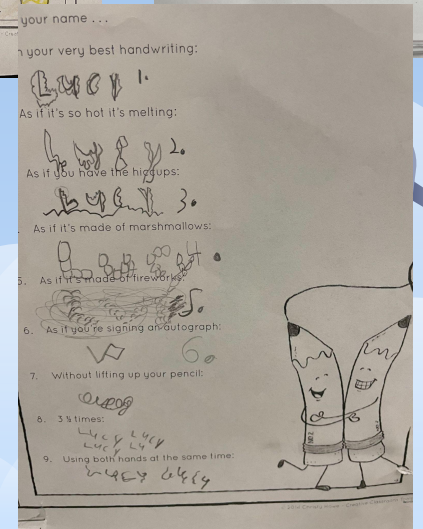 your name . . .
your very best handwriting:
Lucy 1.
As if it's so hot it's melting:
Lucy 2.
As if you have the hiccups:
Lucy 3.
As if it's made of marshmallows:
Lucy 4.
5. As if it's made of fireworks:
5.
6. As if you're signing an autograph:
6.
7. Without lifting up your pencil:
8. 3 ½ times:
Lucy Lucy
Lucy Ly
9. Using both hands at the same time:
Lucy Lucy